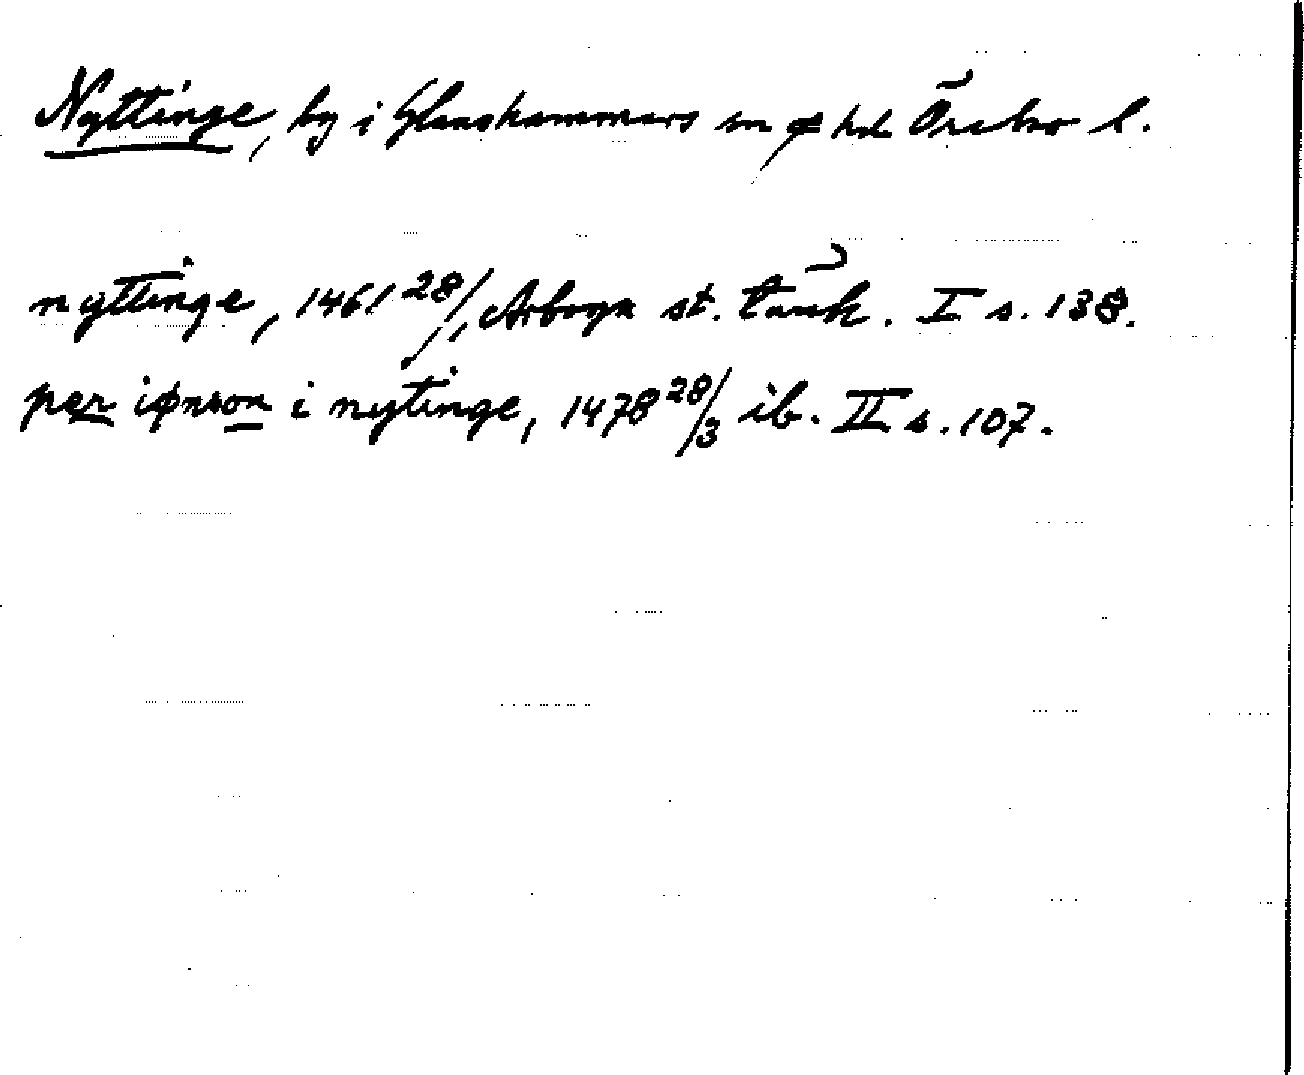 Nyttinge, by i Glanshammars sn o hd Örebro l.
nyttinge, 1461 28/1, Arboga st. tänk. I s. 138.
per iønson i nytinge, 1478 28/3 ib. II s. 107.